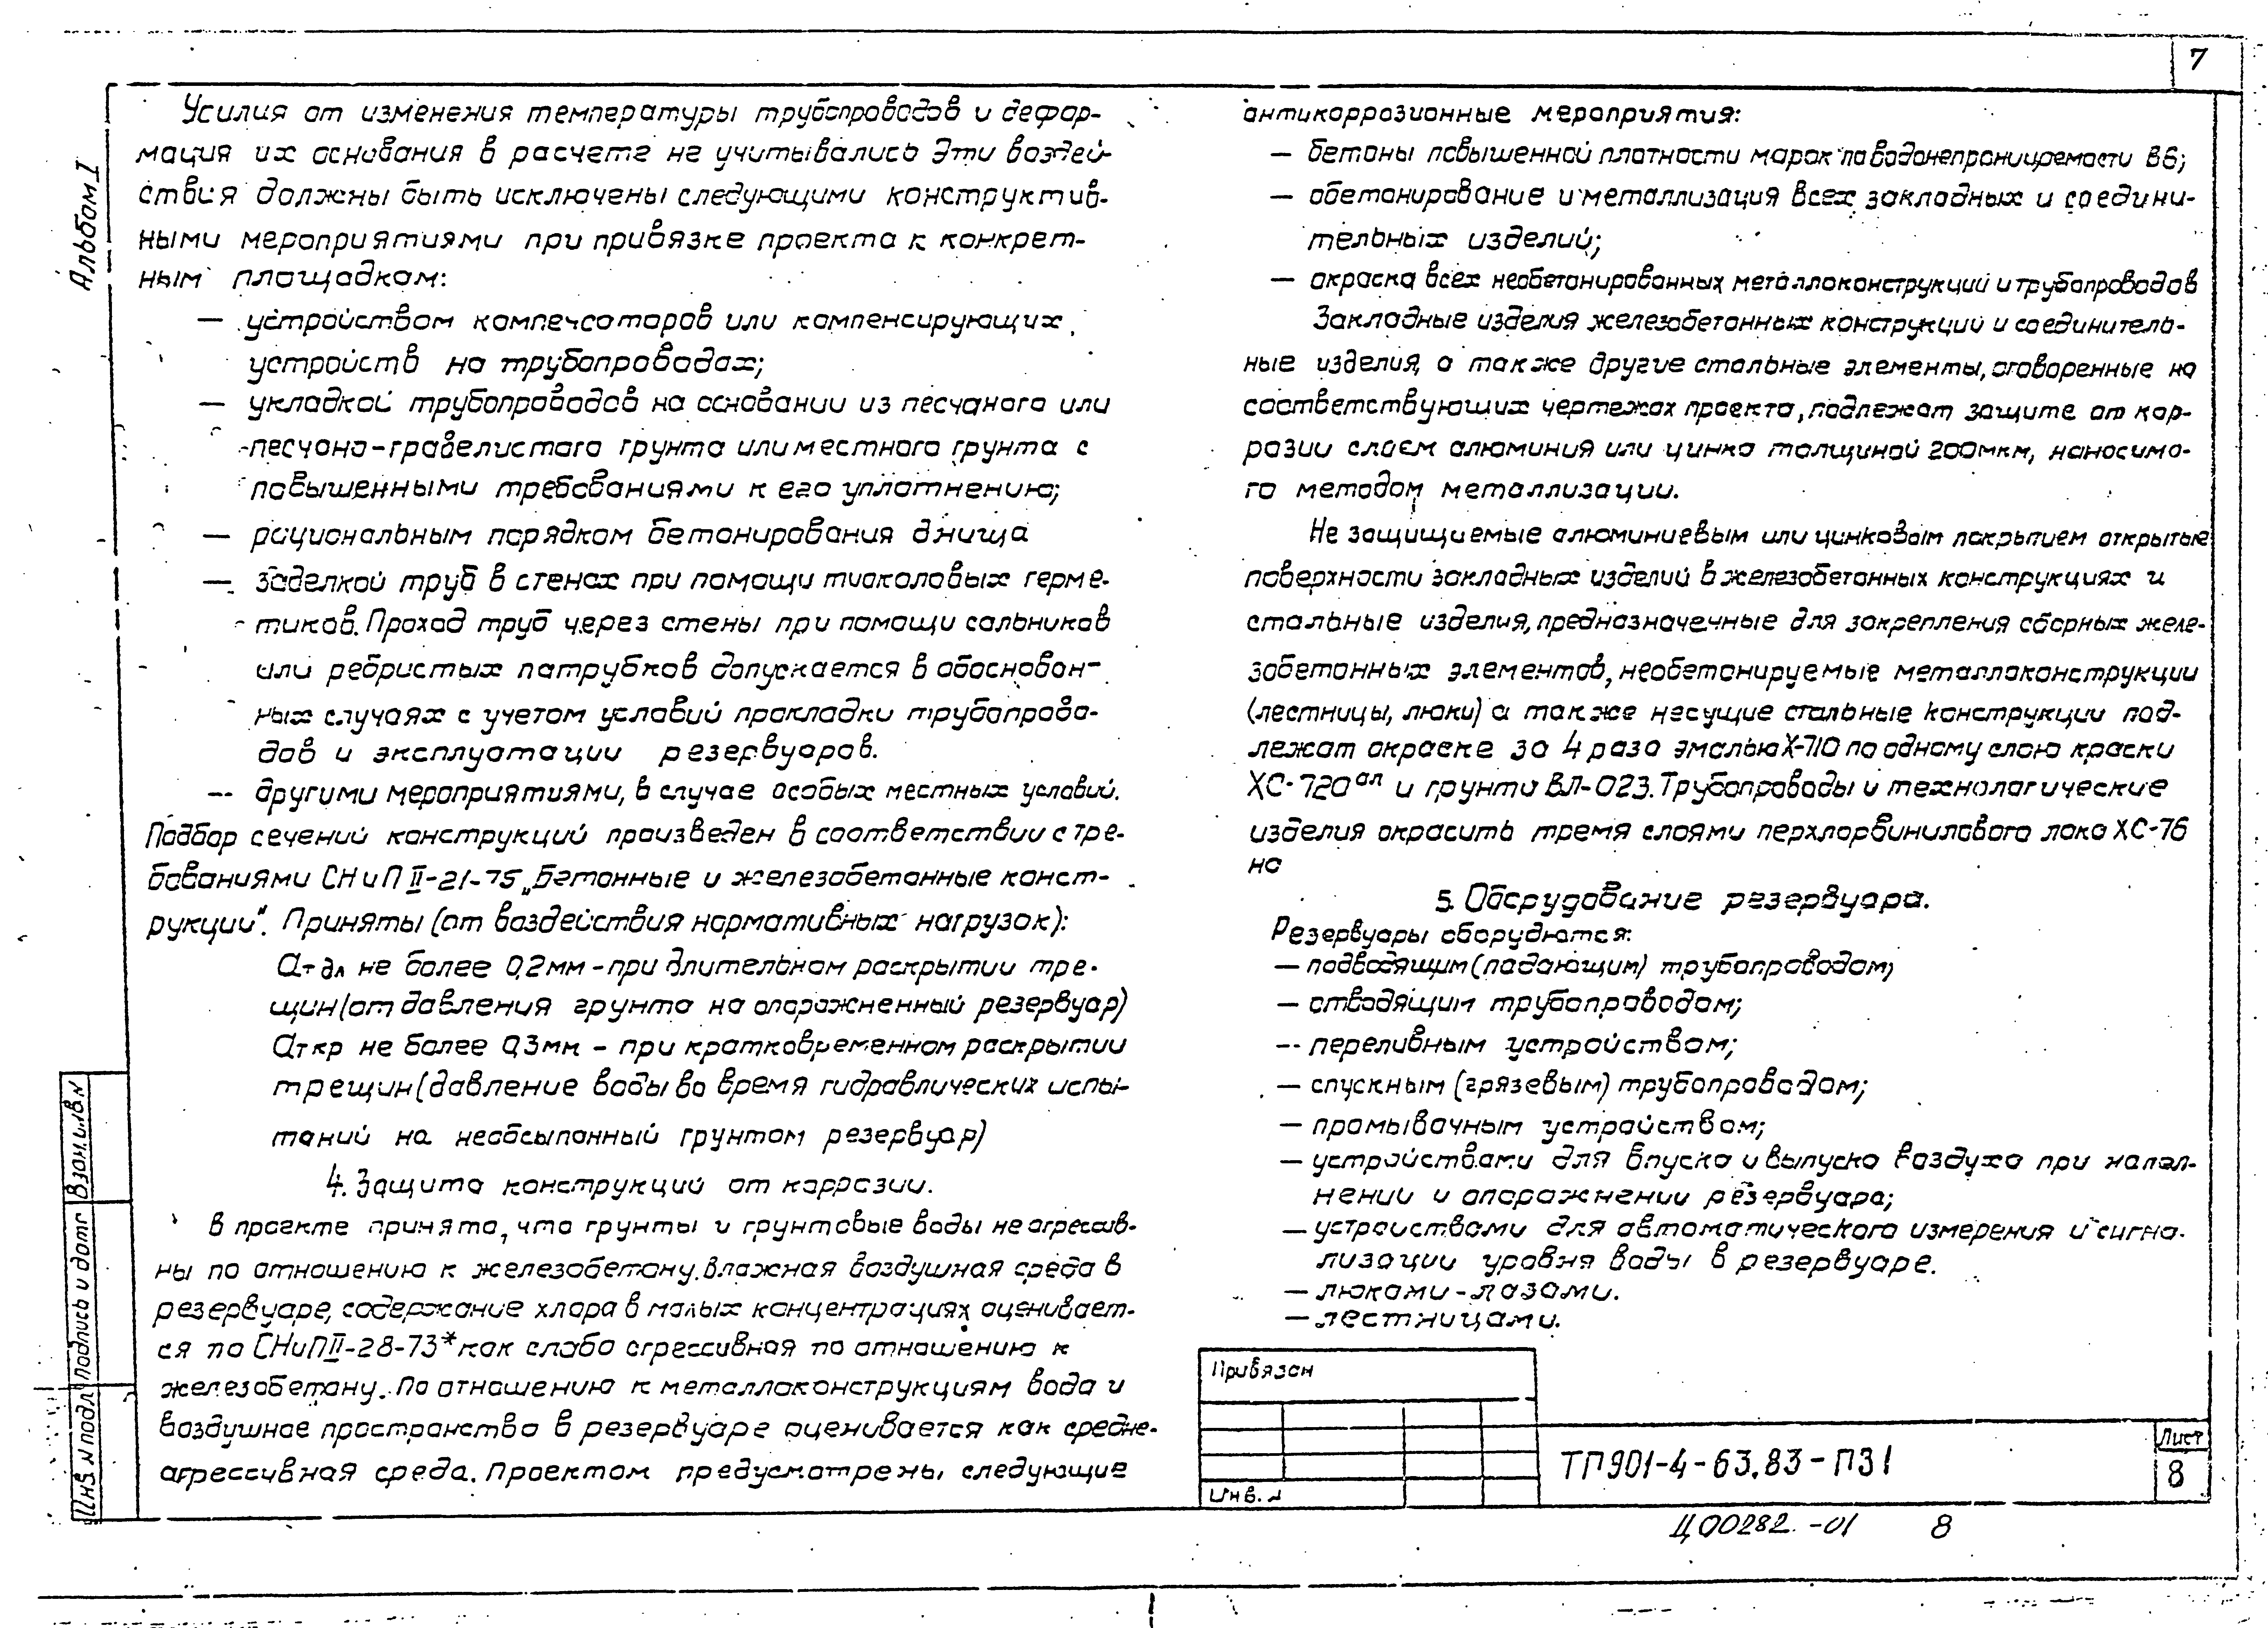 7
Альбом I
Усилия от изменения температуры трубопроводов и дефор-
мация их основания в расчете не учитывались Эти воздей-
ствия должны быть исключены следующими конструктив-
ными мероприятиями при привязке проекта к конкрет-
ным площадкам:
— устройством компенсаторов или компенсирующих
устройств на трубопроводах;
— укладкой трубопроводов на основании из песчаного или
песчано-гравелистого грунта или местного грунта с
повышенными требованиями к его уплотнению;
— рациональным порядком бетонирования днища
— заделкой труб в стенах при помощи тиоколовых герме-
тиков. Проход труб через стены при помощи сальников
или ребристых патрубков допускается в обоснован-
ных случаях с учетом условий прокладки трубопрово-
дов и эксплуатации резервуаров.
— другими мероприятиями, в случае особых местных условий.
Подбор сечений конструкций произведен в соответствии с тре-
бованиями СНиП II-21-75 „Бетонные и железобетонные конст-
рукции". Приняты (от воздействия нормативных нагрузок):
aт дл не более 0,2мм - при длительном раскрытии тре-
щин (от давления грунта на опорожненный резервуар)
aт кр не более 0,3мм - при кратковременном раскрытии
трещин (давление воды во время гидравлических испы-
таний на необсыпанный грунтом резервуар)
4. Защита конструкций от коррозии.
В проекте принято, что грунты и грунтовые воды не агрессив-
ны по отношению к железобетону. Влажная воздушная среда в
резервуаре, содержание хлора в малых концентрациях оценивает-
ся по СНиП II-28-73* как слабо агрессивная по отношению к
железобетону. По отношению к металлоконструкциям вода и
воздушное пространство в резервуаре оценивается как средне-
агрессивная среда. Проектом предусмотрены следующие
антикоррозионные мероприятия:
— бетоны повышенной плотности марок по водонепроницаемости В6;
— обетонирование и металлизация всех закладных и соедини-
тельных изделий;
— окраска всех необетонированных металлоконструкций и трубопроводов
Закладные изделия железобетонных конструкций и соединитель-
ные изделия, а также другие стальные элементы, оговоренные на
соответствующих чертежах проекта, подлежат защите от кор-
розии слоем алюминия или цинка толщиной 200мкм, наносимо-
го методом металлизации.
Не защищаемые алюминиевым или цинковым покрытием открытые
поверхности закладных изделий в железобетонных конструкциях и
стальные изделия, предназначенные для закрепления сборных желе-
зобетонных элементов, необетонируемые металлоконструкции
(лестницы, люки) а также несущие стальные конструкции под-
лежат окраске за 4 раза эмалью Х-710 по одному слою краски
ХС-720ал и грунту ВЛ-023. Трубопроводы и технологические
изделия окрасить тремя слоями перхлорвинилового лака ХС-76
на
5. Оборудование резервуара.
Резервуары оборудются:
— подводящим (подающим) трубопроводом;
— отводящим трубопроводом;
— переливным устройством;
— спускным (грязевым) трубопроводом;
— промывочным устройством;
— устройствами для впуска и выпуска воздуха при напол-
нении и опорожнении резервуара;
— устройствами для автоматического измерения и сигна-
лизации уровня воды в резервуаре.
— люками-лазами.
— лестницами.
Привязан
Инв. №
ТП901-4-63.83-ПЗ1
Лист
8
Взам.инв.N
Подпись и дата
Инв.N подл.
Ц00282-01 8